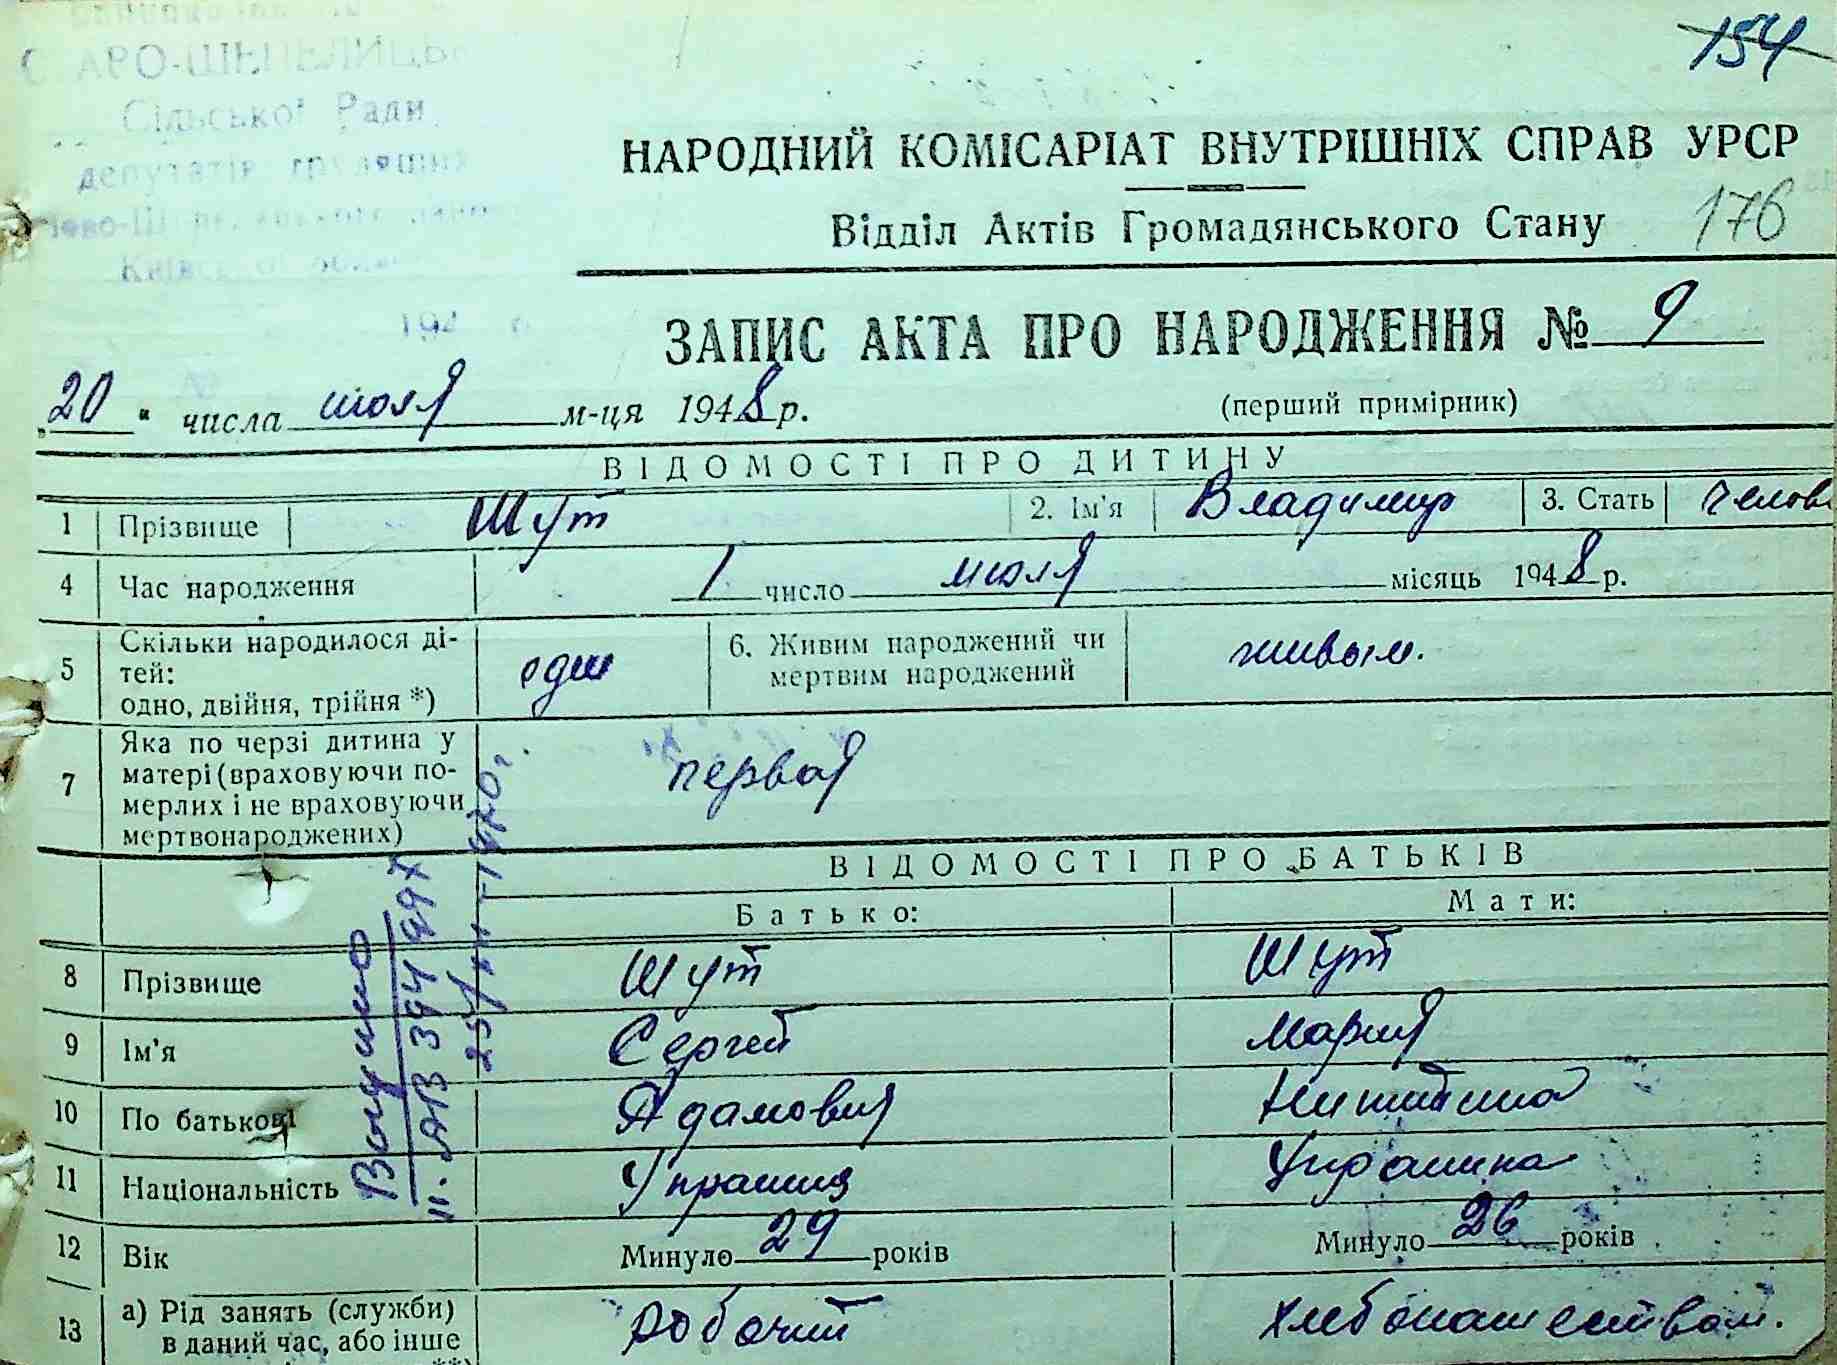 154
СТАРО-ШЕПЕЛИЦЬ
Сільської Ради
депутатів трудящих
176
НАРОДНИЙ КОМІСАРІАТ ВНУТРІШНІХ СПРАВ УРСР
Відділ Актів Громадянського Стану
ЗАПИС АКТА ПРО НАРОДЖЕННЯ № 9
„20“ числа июля м-ця 1948 р.
(перший примірник)
ВІДОМОСТІ ПРО ДИТИНУ
1 Прізвище Шут 2. Ім'я Владимир 3. Стать Челов
4 Час народження 1 число июля місяць 1948 р.
5 Скільки народилося ді-
тей:
одно, двійня, трійня *) один
6. Живим народжений чи
мертвим народжений живым.
7 Яка по черзі дитина у
матері (враховуючи по-
мерлих і не враховуючи
мертвонароджених) первая
ВІДОМОСТІ ПРО БАТЬКІВ
Батько: Мати:
8 Прізвище Шут Шут
9 Ім'я Сергей Мария
10 По батькові Адамович
11 Національність Украинец Украинка
12 Вік Минуло 29 років Минуло 26 років
13 а) Рід занять (служби)
в даний час, або інше
робочий хлебопашеством.